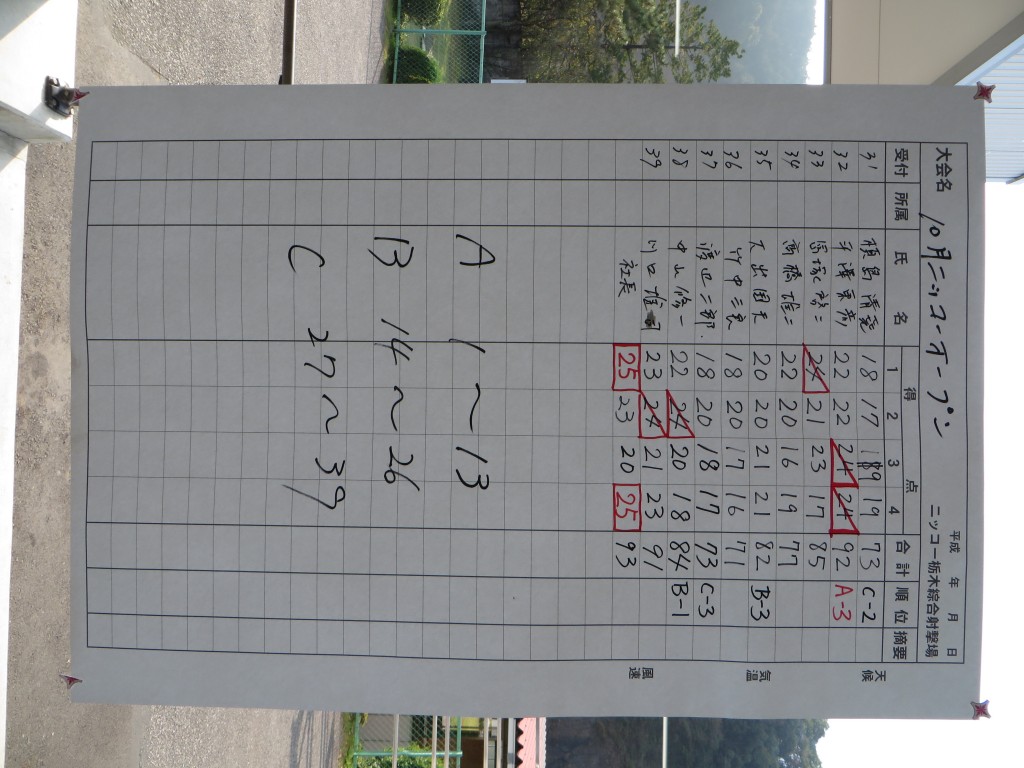 平成 年 月 日
大会名 10月ニッコーオープン ニッコー栃木綜合射撃場
受付 所属 氏名 得点 1 2 3 4 合計 順位 摘要
天候
気温
風速
31 18 17 19 19 73 C-2
32 22 22 24 24 92 A-3
33 24 21 23 17 85
34 高橋雄二 22 20 16 19 77
35 20 20 21 21 82 B-3
36 竹中 18 20 17 16 71
37 渡辺二郎 18 20 18 17 73 C-3
38 中山修一 22 24 20 18 84 B-1
39 川口雄 23 24 21 23 91
社長 25 23 20 25 93
A 1〜13
B 14〜26
C 27〜39